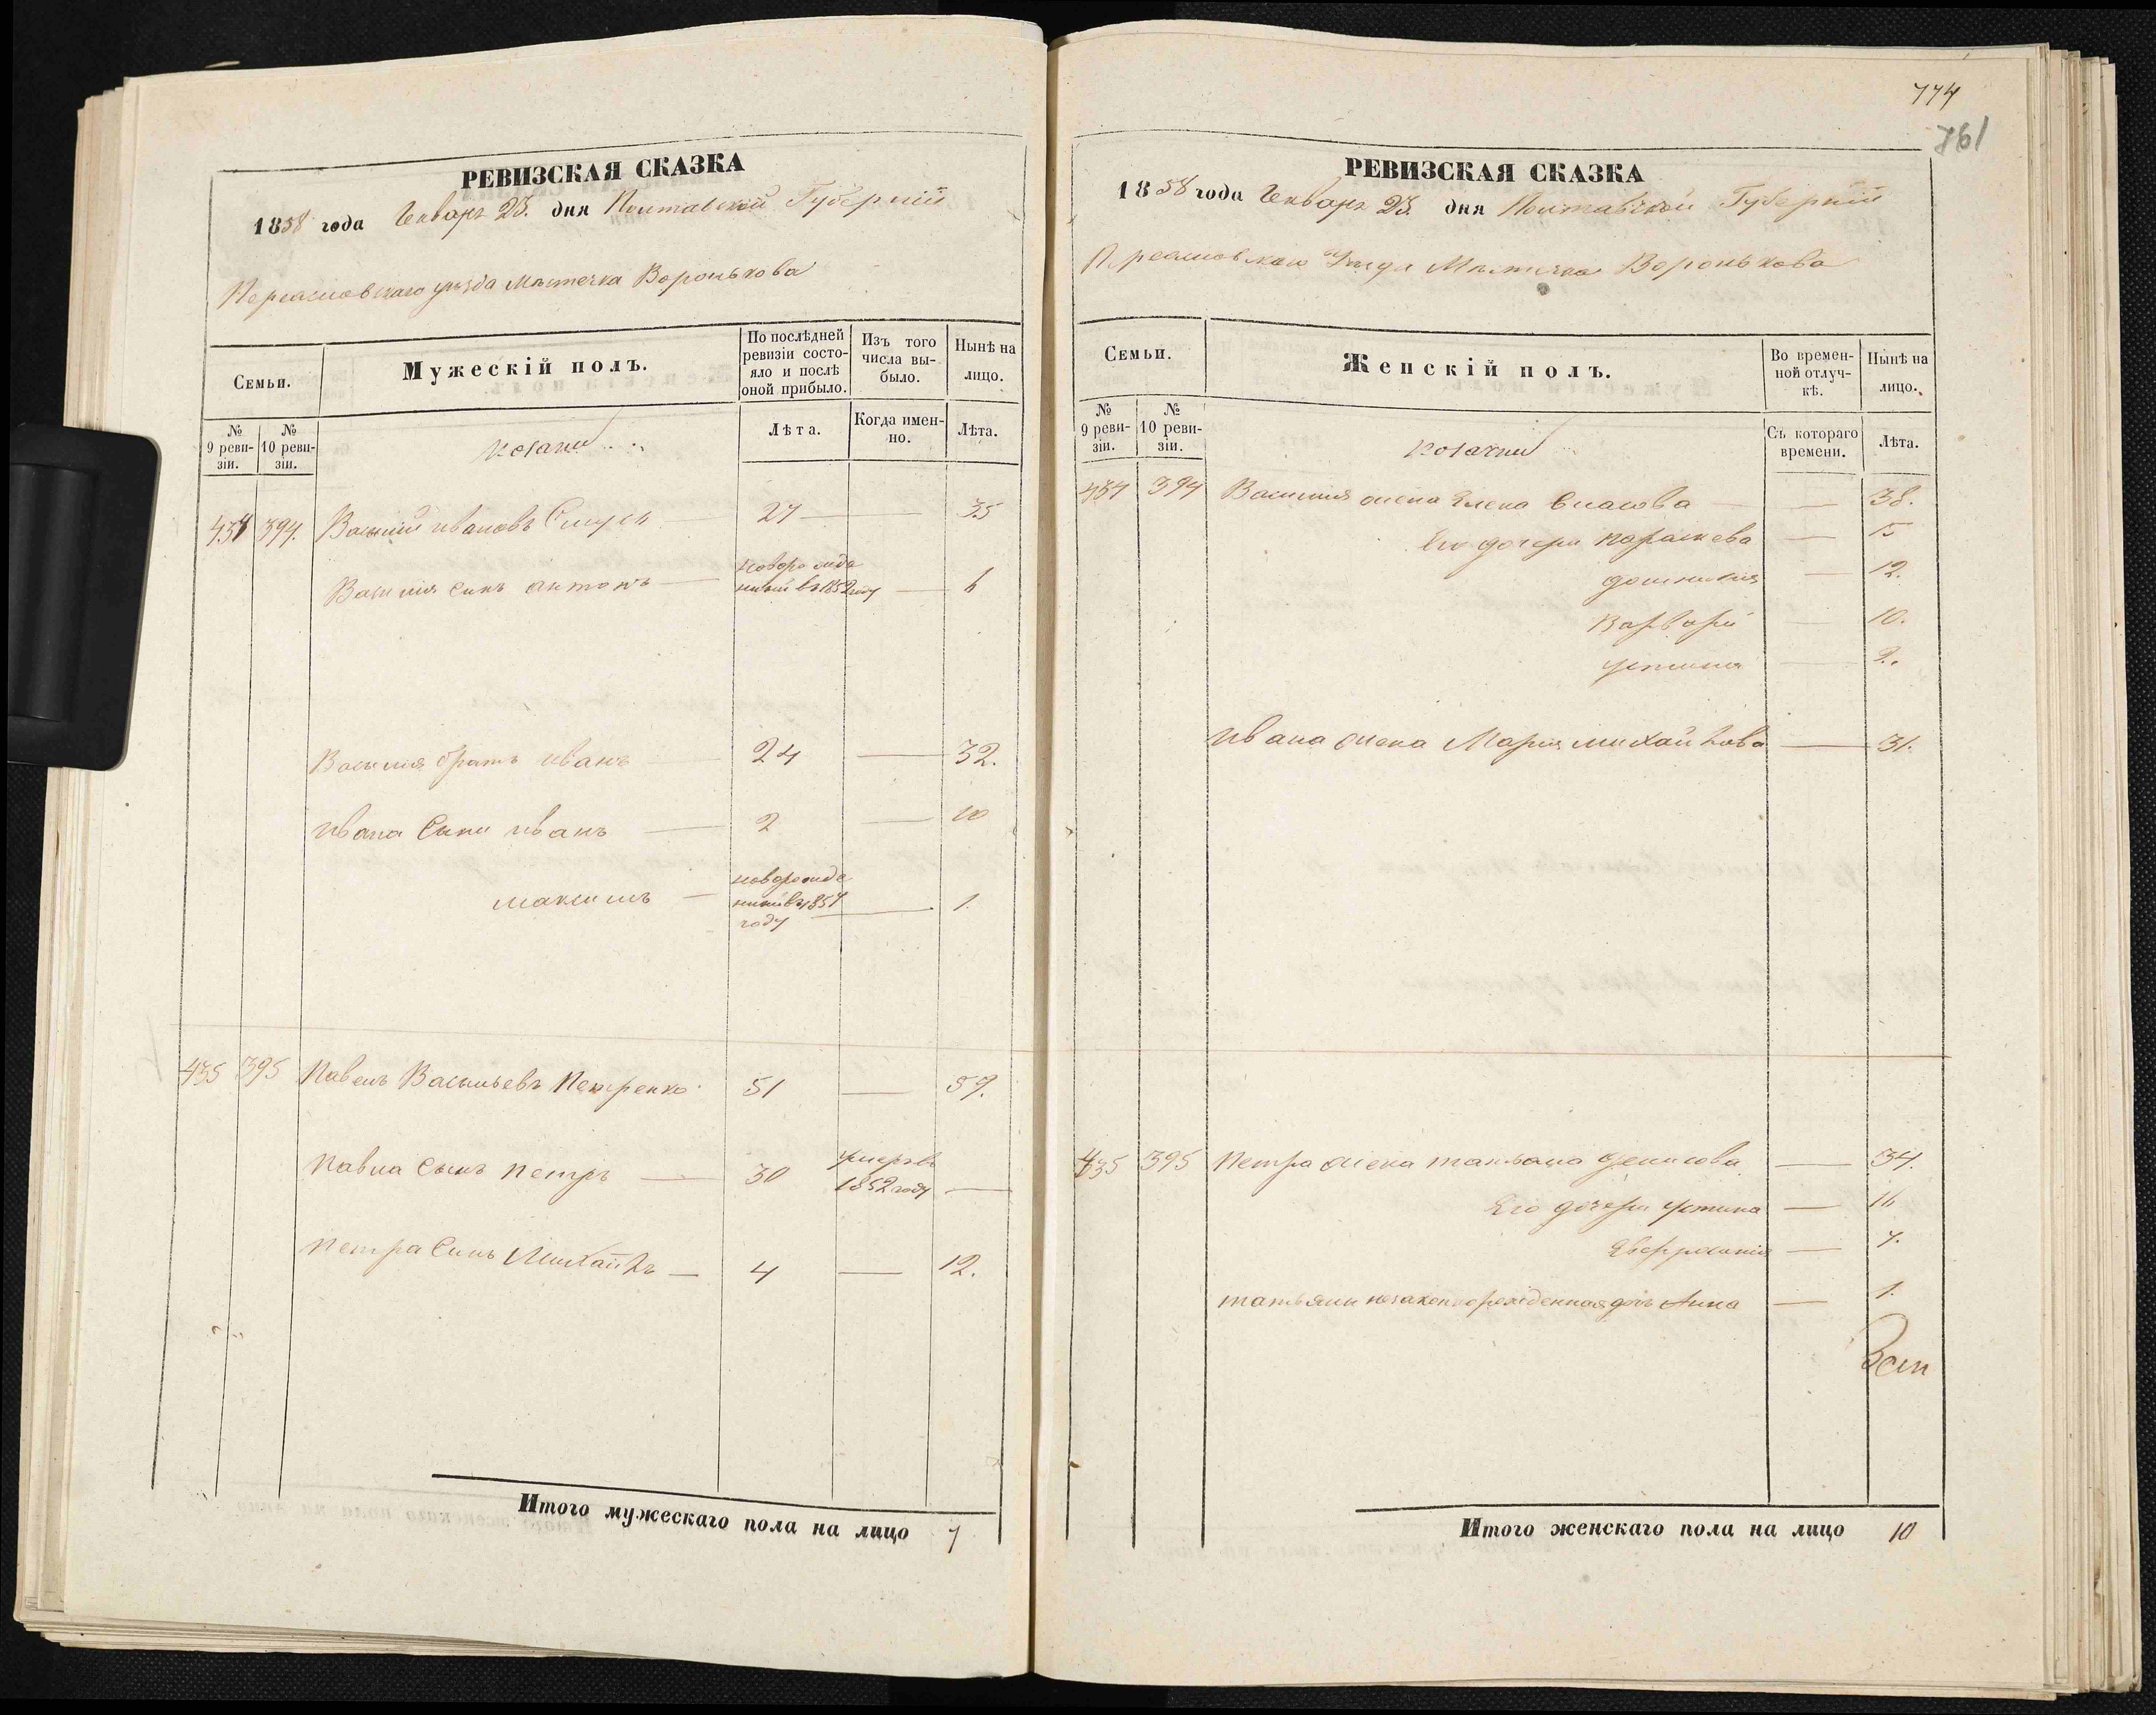 РЕВИЗСКАЯ СКАЗКА
1858 года Генваря 23. дня Полтавской Губерніи
Переяславскаго уезда Мѣстечка Воронькова
Семьи.
Мужескій полъ.
По послѣдней ревизіи состо-
яло и послѣ
оной прибыло.
Изъ того
числа вы-
было.
Нынѣ на
лицо.
№
9 реви-
зіи.
№
10 реви-
зіи.
козаки
Лѣта.
Когда имен-
но.
Лѣта.
434 394. Василій Ивановъ 27 — 35
Василія сынъ Антонъ — новорожде
нный въ 1852 году — 6
Василія братъ Иванъ — 24 — 32.
Ивана сыни Иванъ — 2 — 10
Максимъ — новорожде
нный въ 1857
году — 1.
435 395 Павелъ Васильевъ Петренко 51 — 59.
Павла сынъ Петръ — 30 умеръ въ
1852 году —
Петра сынъ Михайлъ — 4 — 12.
Итого мужескаго пола на лицо 7
774
761
РЕВИЗСКАЯ СКАЗКА
1858 года Генваря 23. дня Полтавской Губерніи
Переяславскаго Уезда Мѣстечка Воронькова
Семьи.
Женскій полъ.
Во времен-
ной отлуч-
кѣ.
Нынѣ на
лицо.
№
9 реви-
зіи.
№
10 реви-
зіи.
козачки
Съ котораго
времени.
Лѣта.
434 394 Василія жена Елена Власова — 38.
Его дочери Параскева — 15
Домникія — 12.
Варвара — 10.
Устинія — 2.
Ивана жена Марія Михайлова — 31.
435 395 Петра жена Татьяна Денисова — 34.
Его дочери Устина — 16
Евфросинія — 7.
Татьяны незаконнорожденная дочь Анна — 1.
Итого женскаго пола на лицо 10